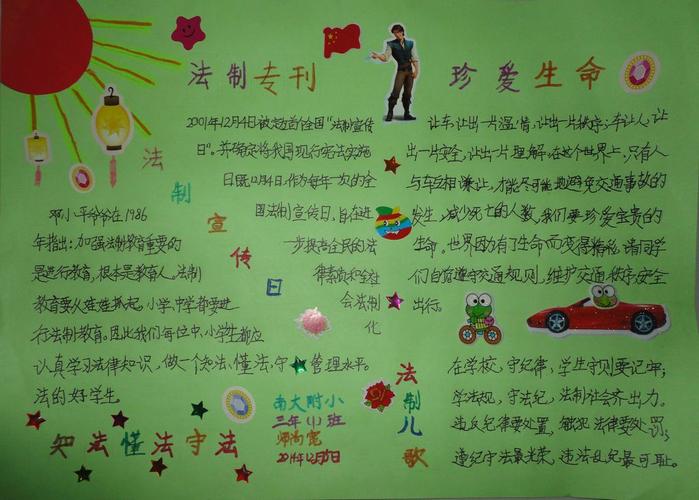 法制专刊
珍爱生命
2001年12月4日被定为首个全国"法制宣传
日"。并确定将我国现行宪法实施
日既12月4日,作为每年一次的全
国法制宣传日,旨在进
一步提高全民的法
律素质和全社
会法制化
管理水平。
法制宣传日
邓小平爷爷在1986
年指出:加强法制教育重要的
是进行教育,根本是教育人。法制
教育要从娃娃抓起,小学,中学都要进
行法制教育。因此我们每位中,小学生都应
认真学习法律知识,做一个知法、懂法、守
法的好学生。
知法懂法守法
让车,让出一片温情,让出一片秩序;车让人,让
出一片安全,让出一片理解,在这个世界上,只有人
与车互相谦让,才能尽可能地避免交通事故的
发生,减少死亡的人数,我们要珍爱宝贵的
生命。世界因为有了生命而变得精彩,请同学
们自觉遵守交通规则,维护交通秩序,安全
出行。
法制儿歌
在学校,守纪律,学生守则要记牢;
学法规,守法纪,法制社会齐出力。
违反纪律要处置,触犯法律要处罚;
遵纪守法最光荣,违法乱纪最可耻。
南大附小
三年(1)班
2014年12月